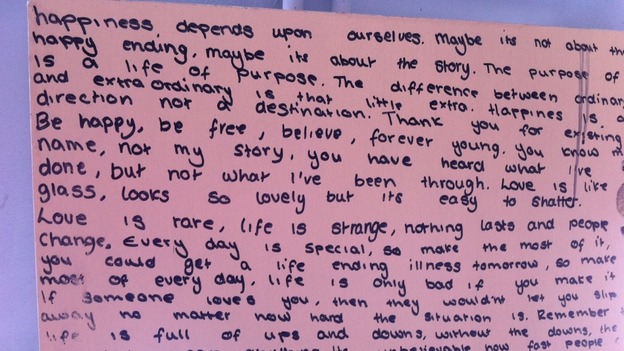 happiness, depends upon ourselves. Maybe its not about the
happy ending, maybe its about the story. The purpose of
is a life of purpose. The difference between ordinary
and extraordinary is that little extra. Happiness is a
direction not a destination. Thank you for existing
Be happy, be free, believe, forever young. you know m
name, not my story. you have heard what I've
done, but not what I've been through. Love is like
glass, looks so lovely but its easy to shatter.
Love is rare, life is strange, nothing lasts and people
change. Every day is special, so make the most of it,
you could get a life ending illness tomorrow, so make
most of every day. life is only bad if you make it
If someone loves you, then they wouldnt let you slip
away no matter how hard the situation is. Remember
life is full of ups and downs, without the downs, the
how fast people